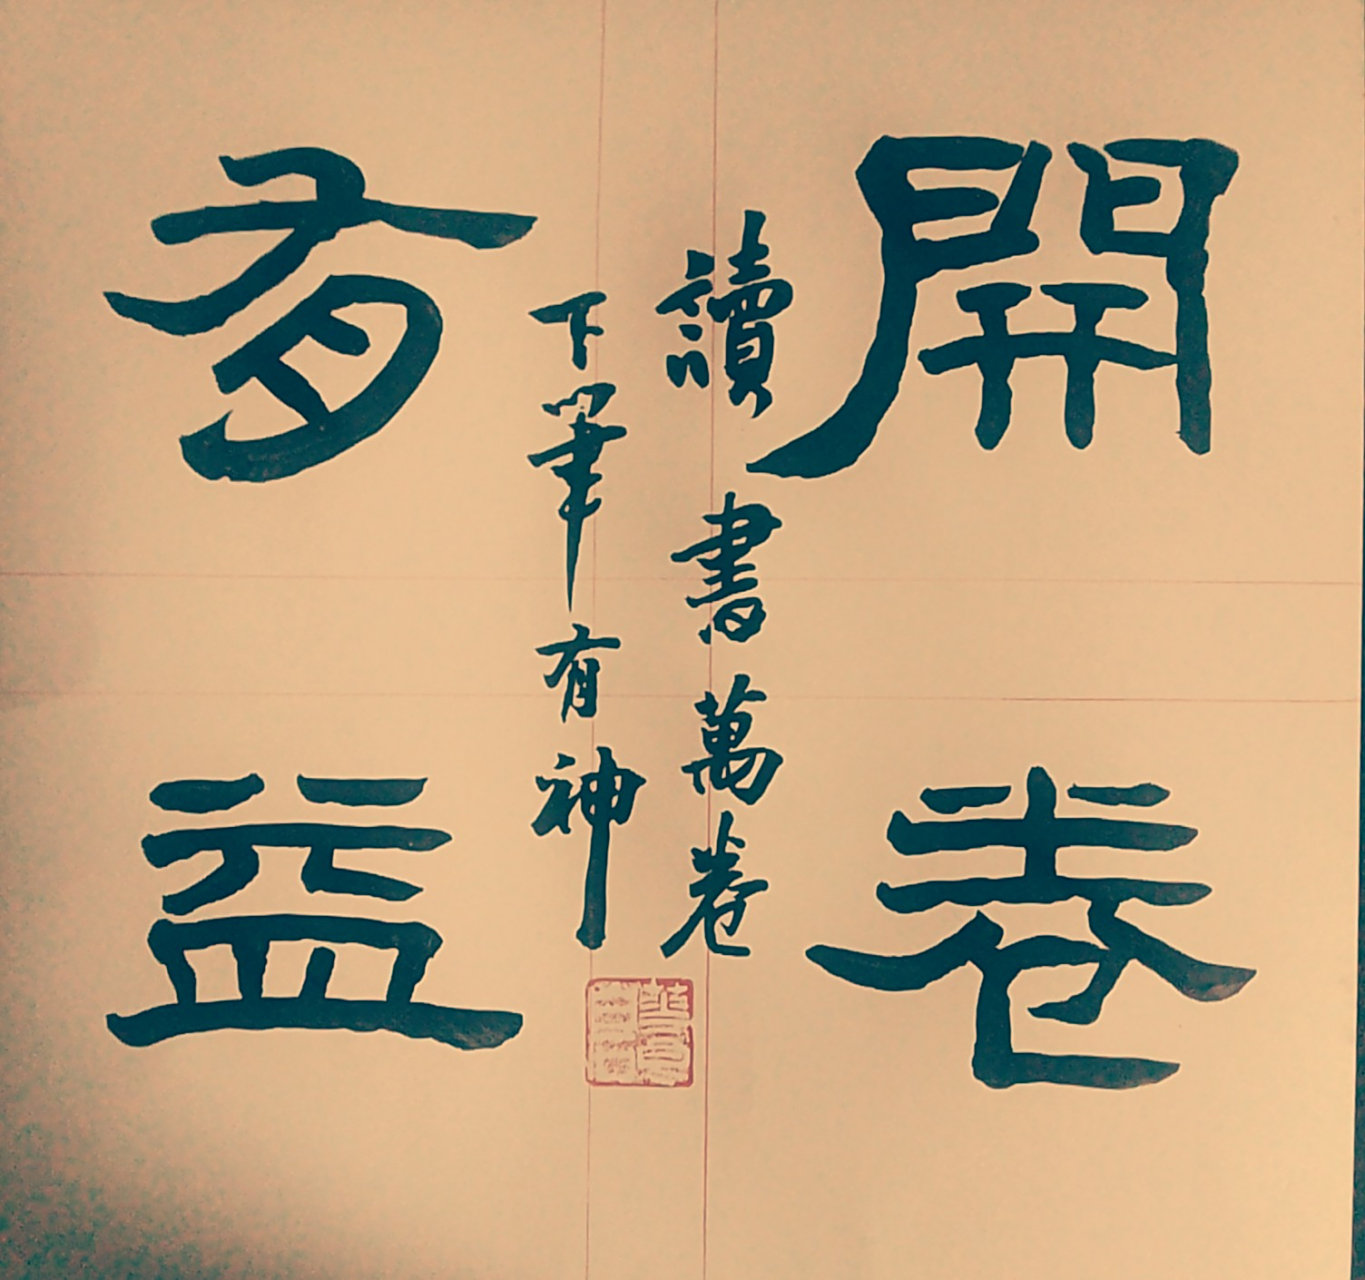 開卷
有益
讀書萬卷
下筆有神